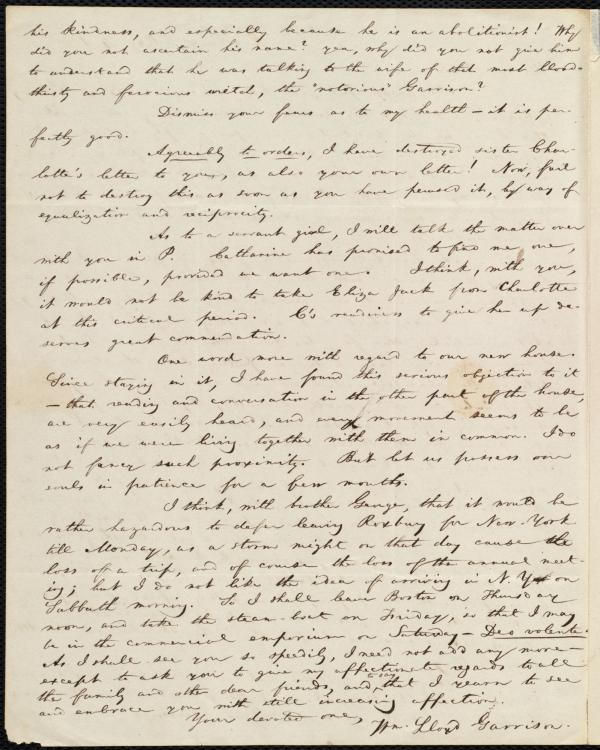 his kindness, and especially because he is an abolitionist! Why
did you not ascertain his name? yea, why did you not give him
to understand that he was talking to the wife of that most blood-
thisty and ferocious wretch, the "notorious" Garrison?
Dismiss your fears as to my health — it is per-
fectly good.
Agreeably to orders, I have destroyed sister Char-
lotte's letter to yours, as also your own letter! Now, fail
not to destroy this as soon as you have perused it, by way of
equalization and reciprocity.
As to a servant girl, I will talk the matter over
with you in P. Catharine has promised to find me one,
if possible, provided we want one. I think, with you,
it would not be kind to take Eliza Jack from Charlotte
at this critical period. C's readiness to give her up de-
serves great commendation.
One word more with regard to our new house.
Since staying in it, I have found this serious objection to it
— that reading and conversation in the other part of the house,
are very easily heard, and every movement seems to be
as if we were living together with them in common. I do
not fancy such proximity. But let us possess our
souls in patience for a few months.
I think, with brother George, that it would be
rather hazardous to defer leaving Roxbury for New-York
till Monday, as a storm might on that day cause the
loss of a trip, and of course the loss of the annual meet-
ing; but I do not like the idea of arriving in N. Y. on
Sabbath morning. So I shall leave Boston on Thursday
noon, and take the steam-boat on Friday, so that I may
be in the commercial emporium on Saturday — Deo volente.
As I shall see you so speedily, I need not add any more —
except to ask you to give my affectionate regards to all
the family and other dear friends, and to say that I yearn to see
and embrace you with still increasing affection.
Your devoted one, Wm. Lloyd Garrison.